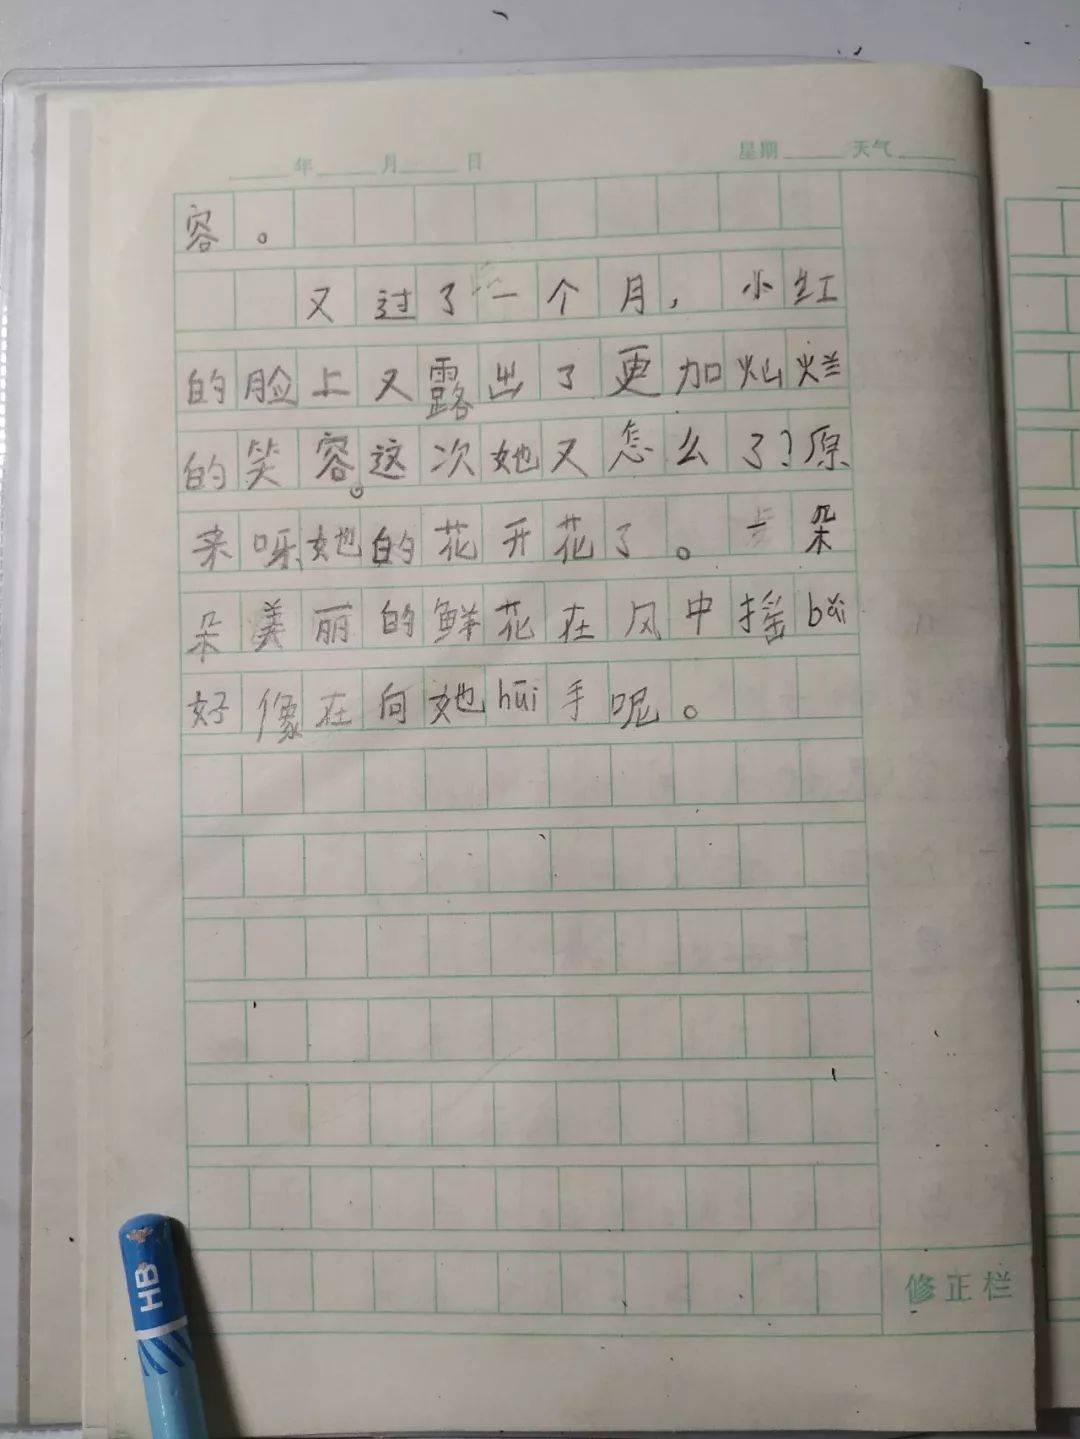 年 月 日 星期 天气
容。
又过了一个月，小红
的脸上又露出了更加灿烂
的笑容。这次她又怎么了?原
来呀她的花开花了。一朵
朵美丽的鲜花在风中摇bǎi
好像在向她huī手呢。
修正栏
HB